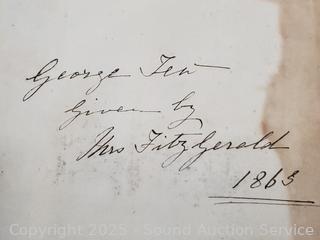 George Few
given by
Mrs FitzGerald
1863
Copyright 2025 - Sound Auction Service